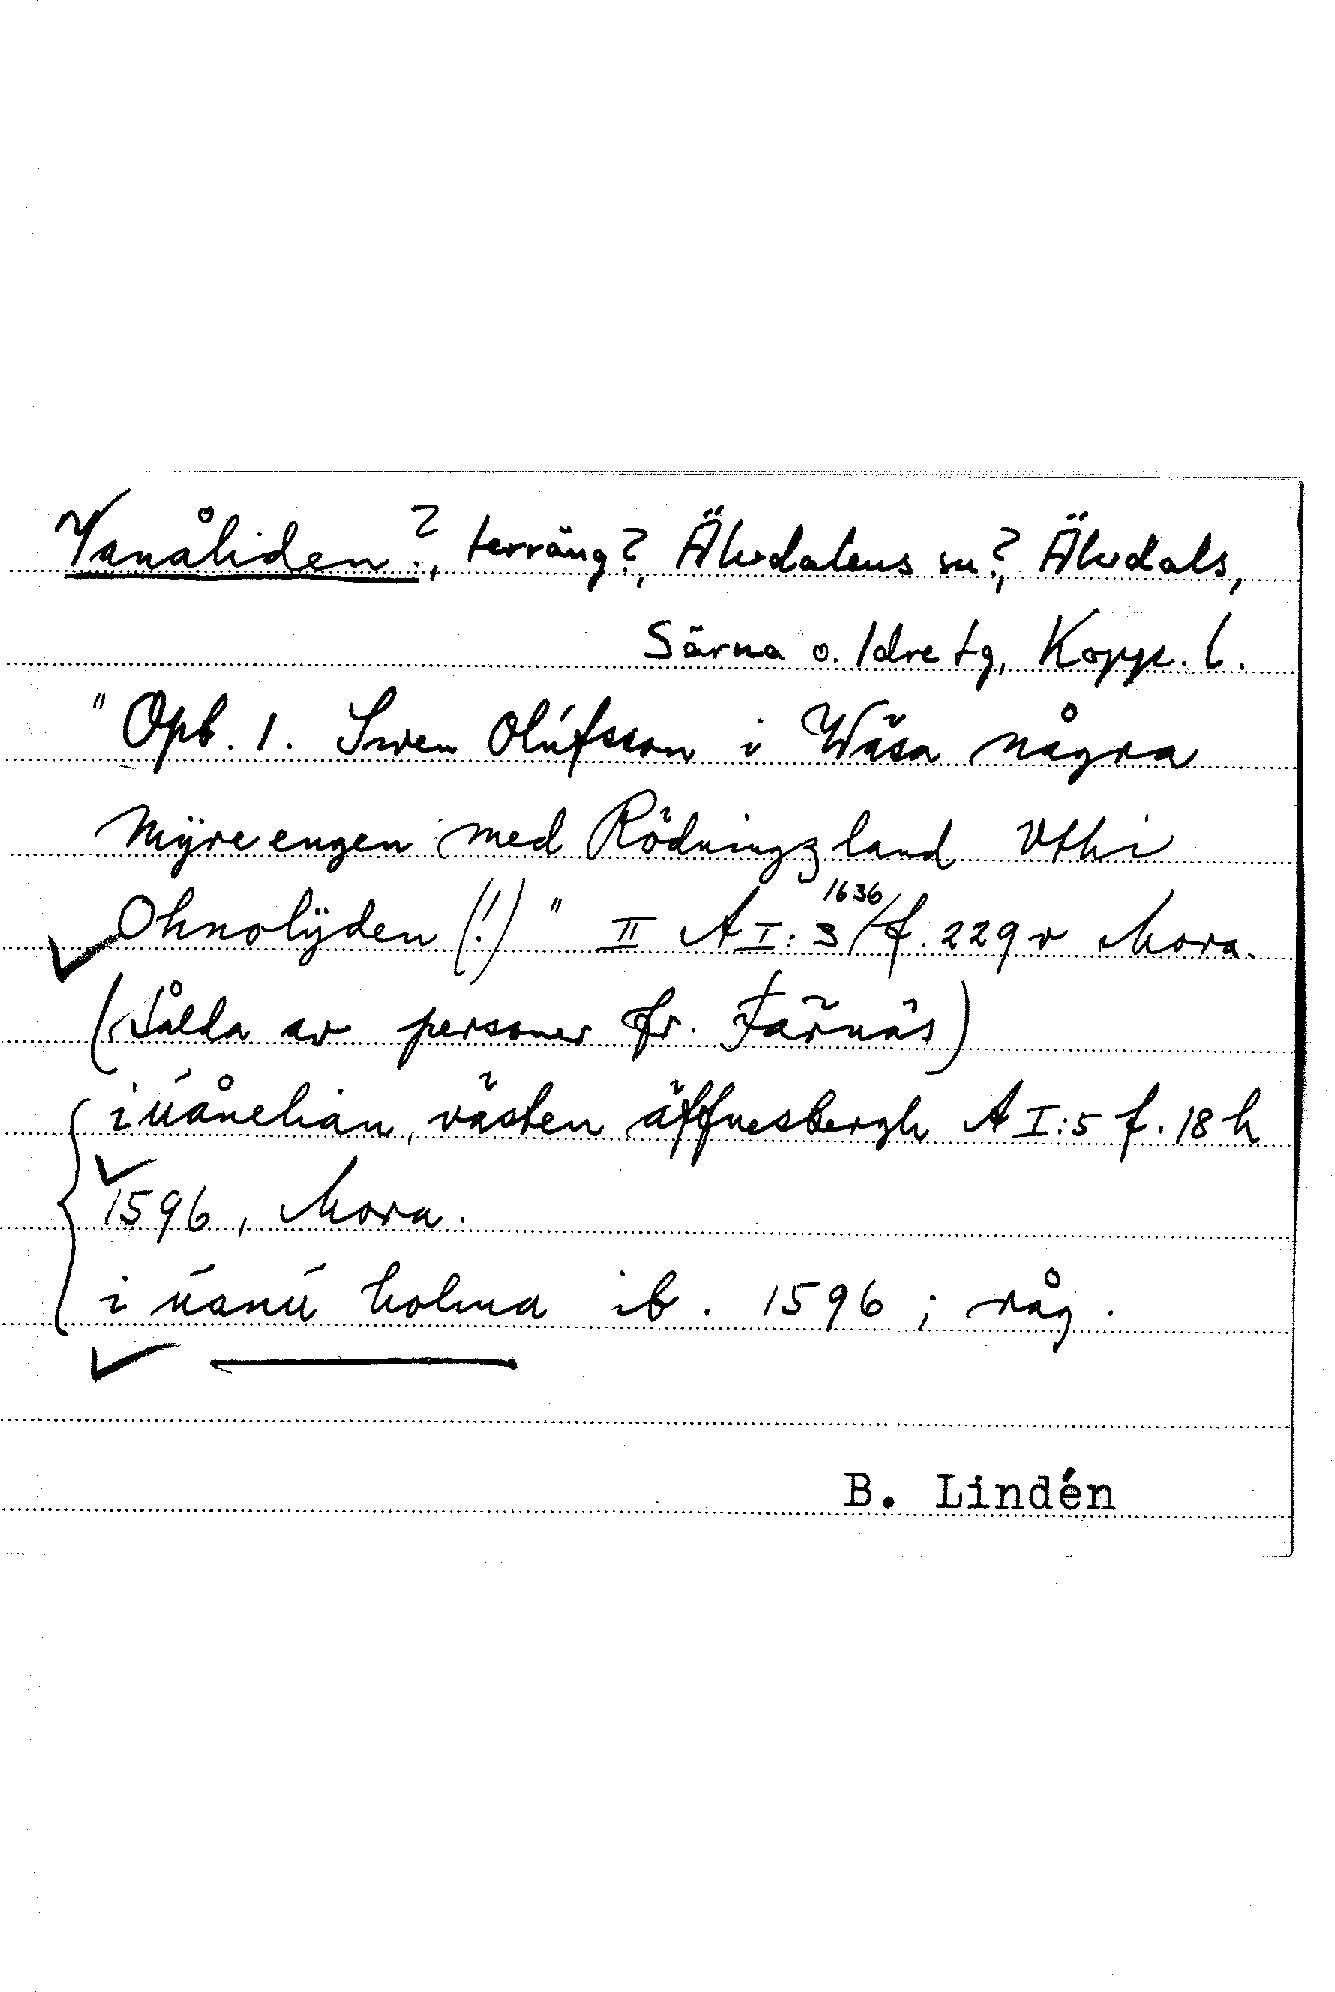 Vanåliden?, terräng?, Älvdalens sn?, Älvdals,
Särna o. Idre tg, Kopp. l.
"Opb. 1. Swen Olúfsson i Wäsa några
Mÿre engen med Rödningzland Vthi
Ohnolÿden (!)" II A I:3 1636/f. 229 v Mora.
(Sålda av personer fr. Färnäs)
i úånelian, västen äffuesbergh A I:5 f. 18 h
1596, Mora.
i úanú holma ib. 1596; råg.
B. Lindén